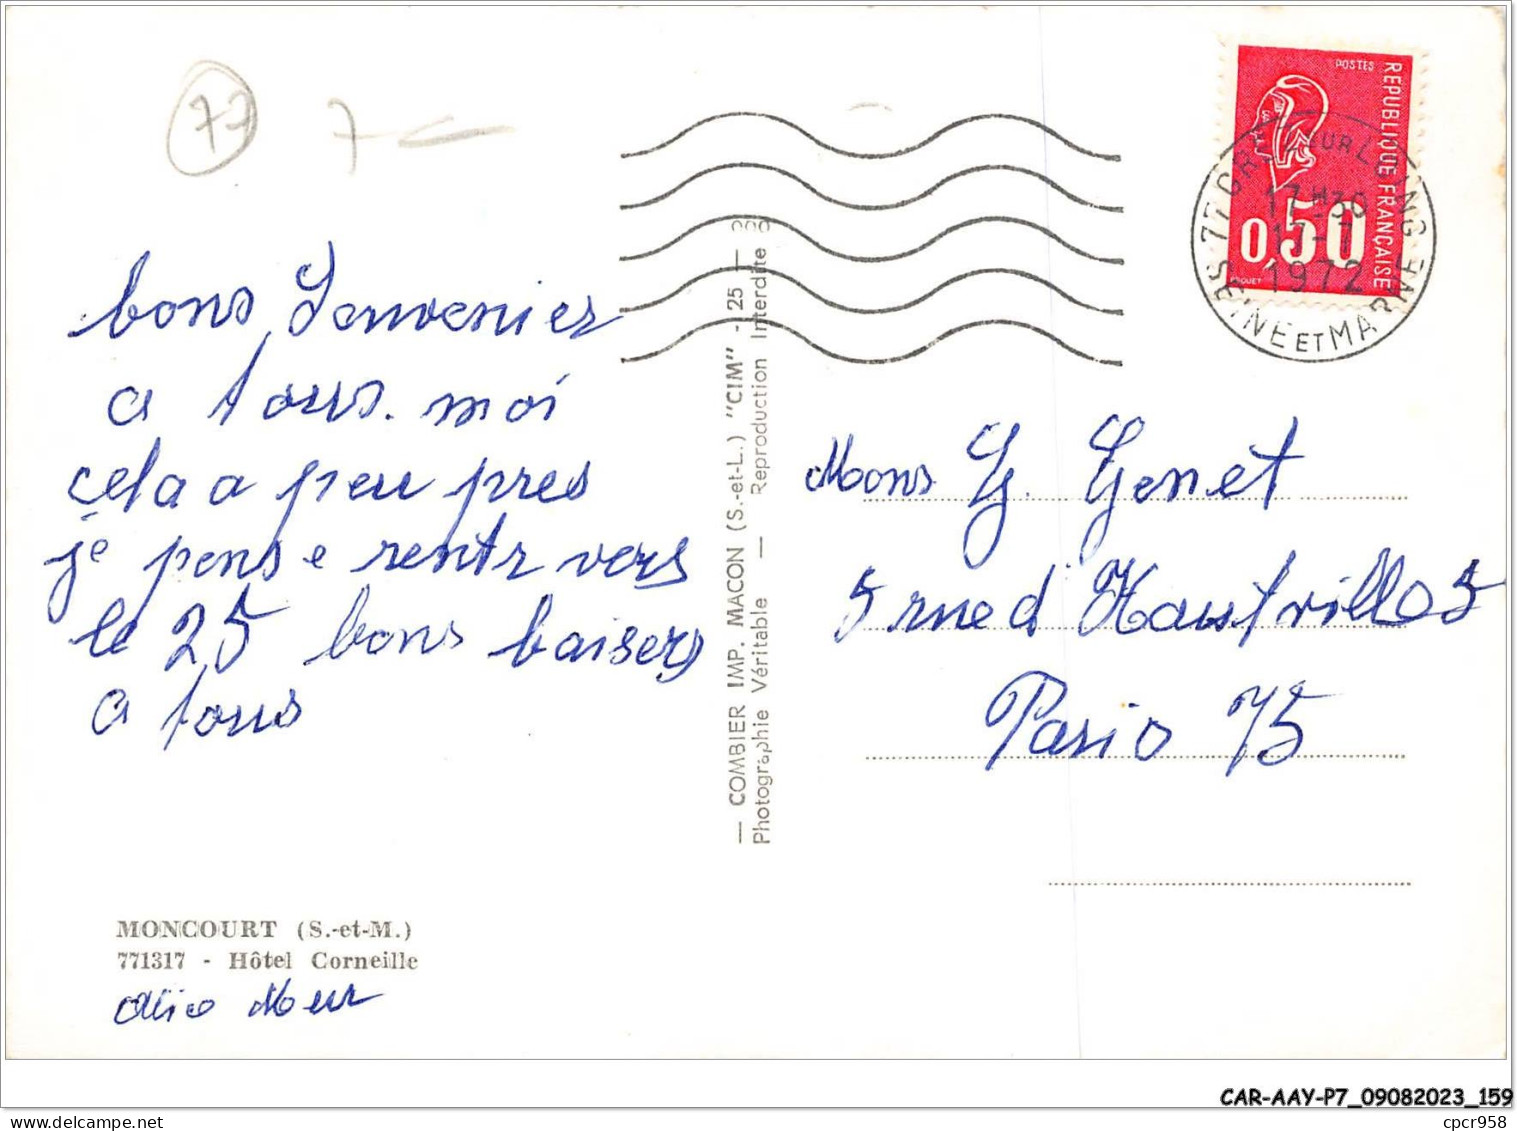 77
7
bons Souvenier
a tous. moi
cela a peu pres
je pense rentr vers
le 25 bons baisers
a tous
MONCOURT (S.-et-M.)
771317 - Hôtel Corneille
— COMBIER IMP. MACON (S.-et-L.) "CIM" - 25 —
Photographie Véritable — Reproduction Interdite
POSTES
REPUBLIQUE FRANÇAISE
0,50
77 GR SUR LOING
17H30
17-7
1972
SEINE ET MARNE
Mons G. Genet
5 rue d Hautvilles
Paris 75
CAR-AAY-P7_09082023_159
cpcr958